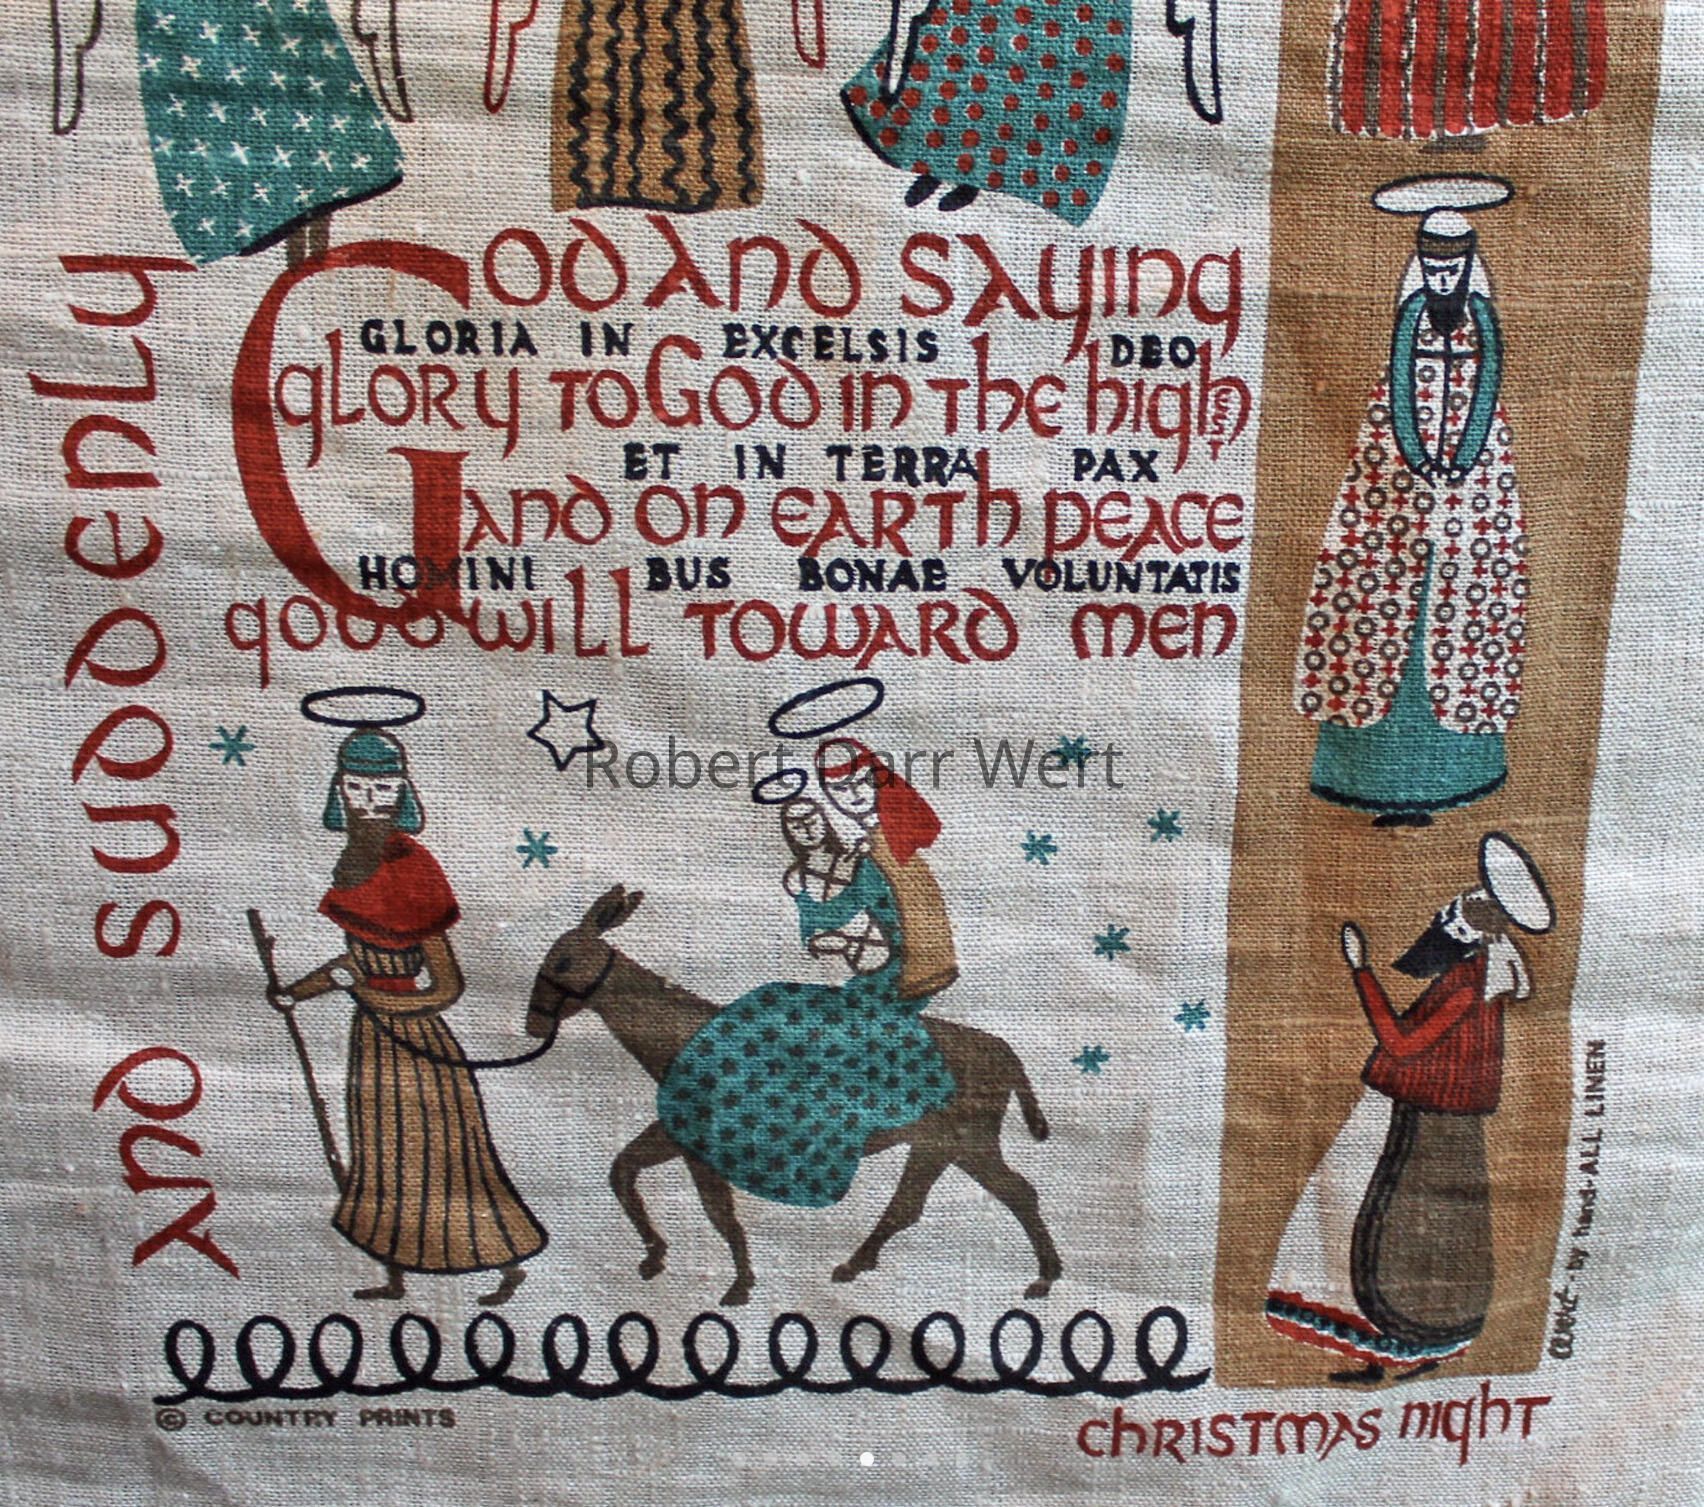 And suddenly
God and saying
GLORIA IN EXCELSIS DEO
glory to God in the highest
ET IN TERRA PAX
and on earth peace
HOMINI BUS BONAE VOLUNTATIS
good will toward men
Robert Darr Wert
by hand - ALL LINEN
© COUNTRY PRINTS
christmas night